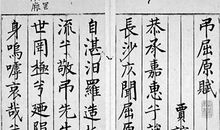 弔屈原賦
賈
恭承嘉惠兮
長沙仄聞屈原
自湛汨羅造
流兮敬弔先生
世罔極兮廼隕
身嗚嘑哀哉